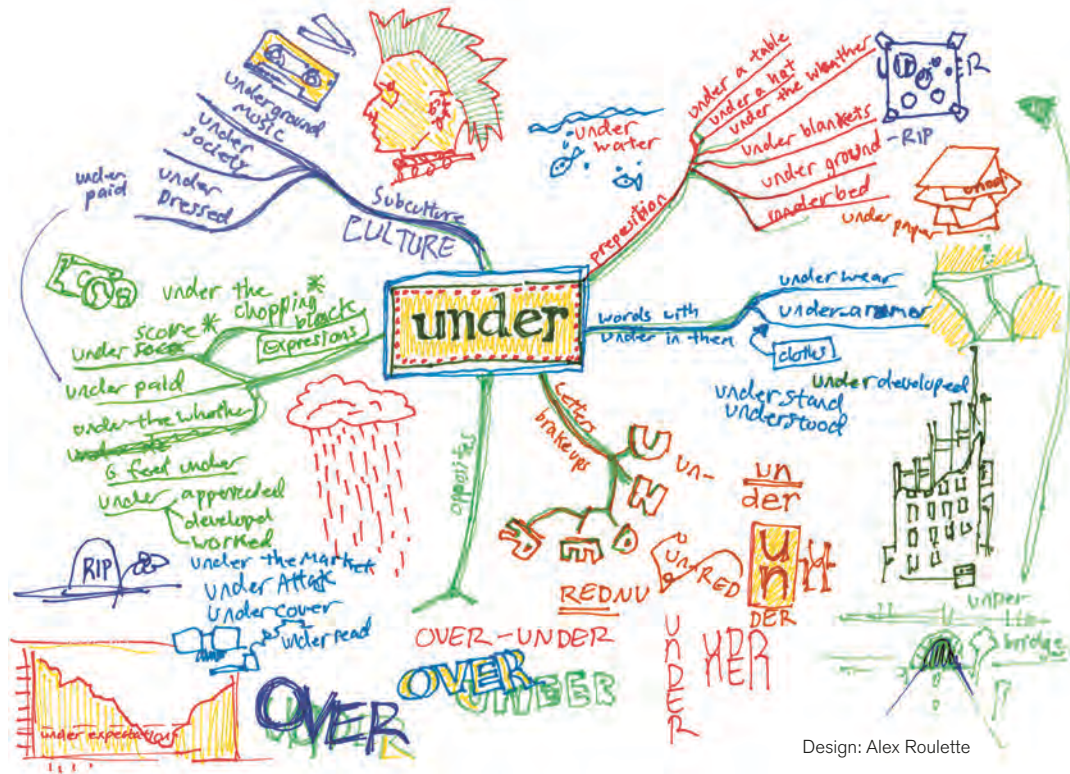 under
Subculture
CULTURE
underground
music
under
society
under
Dressed
under
paid
under
water
preposition
under a table
under a hat
under the whather
under blankets
under ground
-RIP
under bed
under paper
words with
under in them
under wear
under armer
cloths
underdeveloped
under stand
understood
under the
chopping
block
Expresions
score
under
under paid
under the whather
6 feed under
under
developed
worked
RIP
under the market
under Attak
under cover
under read
under expectations
opposites
OVER-UNDER
OVER
UNDER
OVER
Letters
brake ups
U
N
D
E
R
un-
un
der
REDNU
un-RED
un
DER
UNDER
UN
under
bridge
Design: Alex Roulette